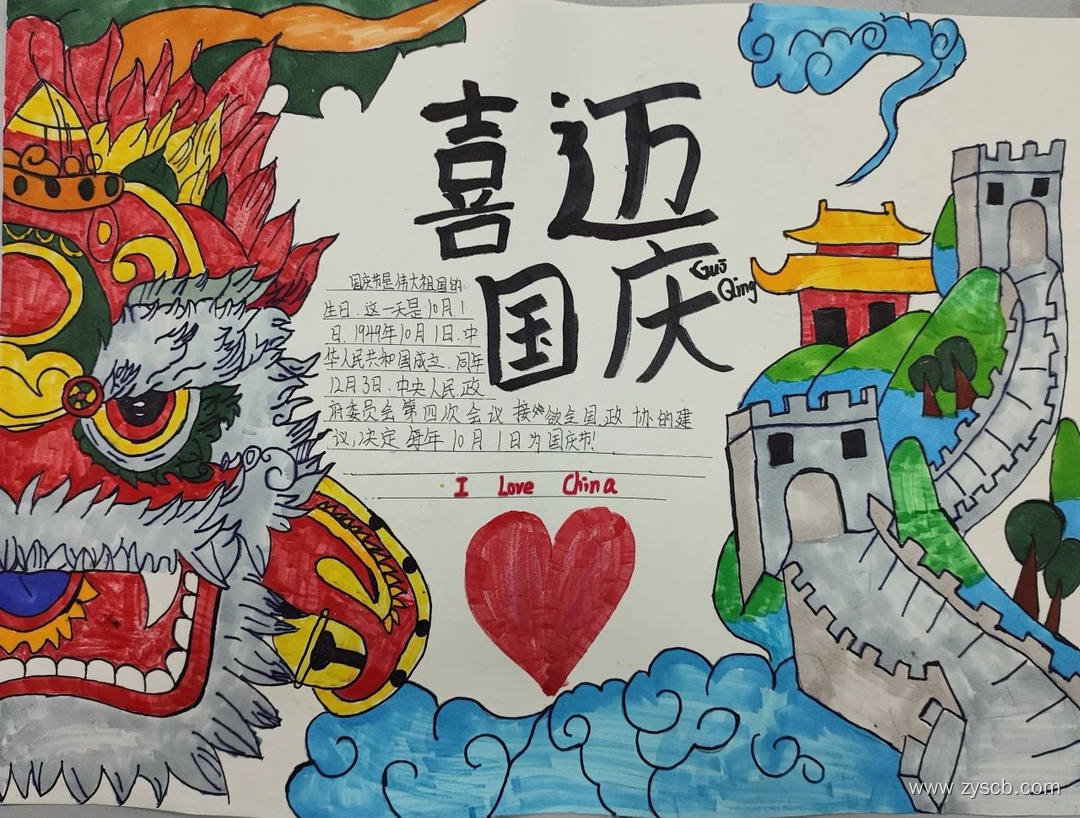 喜迈
国庆
Guó
Qìng
国庆节是伟大祖国的
生日.这一天是10月1
日.1949年10月1日.中
华人民共和国成立.同年
12月3日.中央人民政
府委员会第四次会议接 全国政协的建
议,决定每年10月1日为国庆节!
I Love China
www.zyscb.com